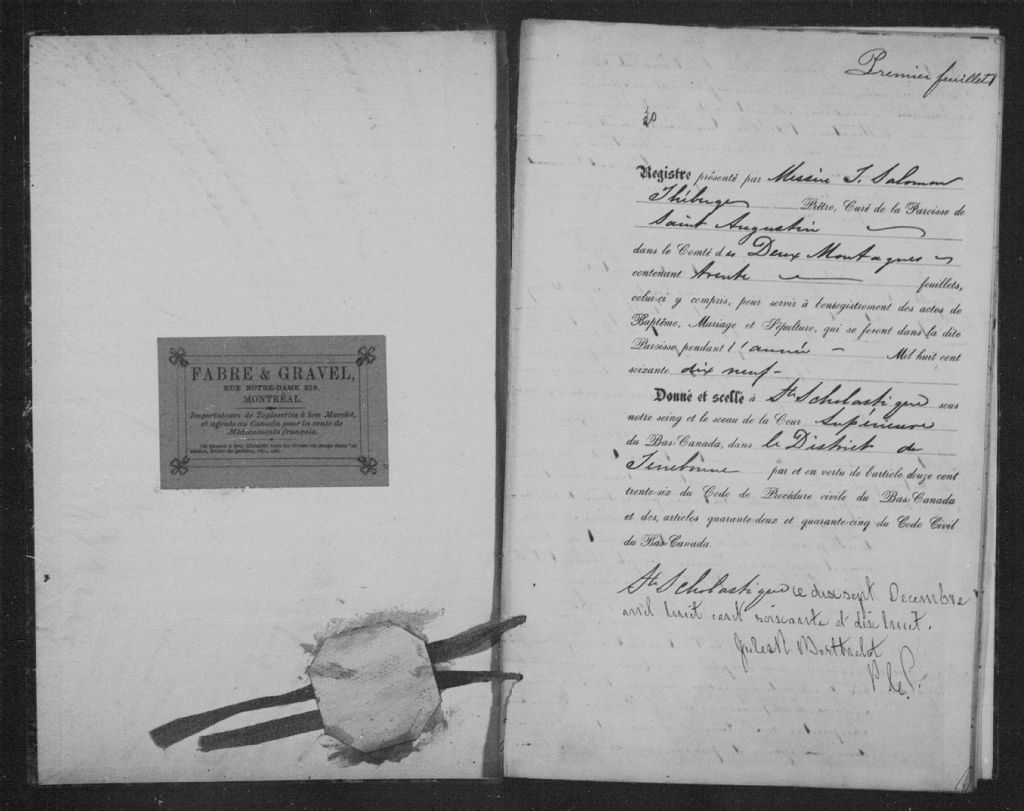 FABRE & GRAVEL,
RUE NOTRE-DAME 219.
MONTRÉAL.
Importateurs de Tapisseries à bon Marché,
et agents au Canada pour la vente de
Médicaments français.
Premier feuillet
Registre présenté par Messire J. Salomon
Théberge Prêtre, Curé de la Paroisse de
Saint Augustin
dans le Comté des Deux Montagnes
contenant trente feuillets,
celui-ci y compris, pour servir à l'enregistrement des actes de
Baptême, Mariage et Sépulture, qui se feront dans la dite
Paroisse, pendant l'année Mil huit cent
soixante dix neuf
Donné et scellé à Ste Scholastique sous
notre seing et le sceau de la Cour Supérieure
du Bas-Canada, dans le District de
Terrebonne par et en vertu de l'article douze cent
trente-six du Code de Procédure civile du Bas-Canada
et des articles quarante-deux et quarante-cinq du Code Civil
du Bas-Canada.
Ste Scholastique ce dix sept Decembre
mil huit cent soixante et dix huit.